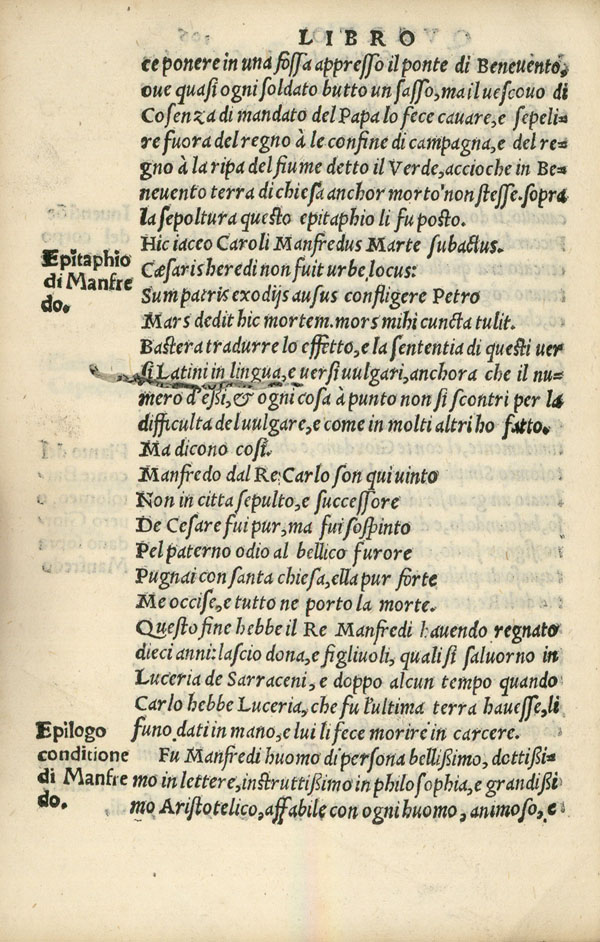 LIBRO
ce ponere in una fossa appresso il ponte di Beneuento,
oue quasi ogni soldato butto un sasso, ma il uescouo di
Cosenza di mandato del Papa lo fece cauare, e sepeli-
re fuora del regno à le confine di campagna, e del re=
gno à la ripa del fiume detto il Verde, accioche in Be=
neuento terra di chiesa anchor morto non stesse. sopra
la sepoltura questo epitaphio li fu posto.
Epitaphio
di Manfre
do.
Hic iaceo Caroli Manfredus Marte subactus.
Cæsaris heredi non fuit urbe, locus:
Sum patris ex odijs ausus confligere Petro
Mars dedit hic mortem. mors mihi cuncta tulit.
Bastera tradurre lo effetto, e la sententia di questi uer
si Latini in lingua, e uersi uulgari, anchora che il nu=
mero d'essi, & ogni cosa à punto non si scontri per la
difficulta del uulgare, e come in molti altri ho fatto.
Ma dicono cosi.
Manfredo dal Re Carlo son qui uinto
Non in citta sepulto, e successore
De Cesare fui pur, ma fui sospinto
Pel paterno odio al bellico furore
Pugnai con santa chiesa, ella pur forte
Me occise, e tutto ne porto la morte.
Questo fine hebbe il Re Manfredi hauendo regnato
dieci anni: lascio dona, e figliuoli, quali si saluorno in
Luceria de Sarraceni, e doppo alcun tempo quando
Carlo hebbe Luceria, che fu l'ultima terra hauesse, li
funo dati in mano, e lui li fece morire in carcere.
Epilogo
conditione
di Manfre
do.
Fu Manfredi huomo di persona bellissimo, dottissi=
mo in lettere, instruttissimo in philosophia, e grandissi
mo Aristotelico, affabile con ogni huomo, animoso, e